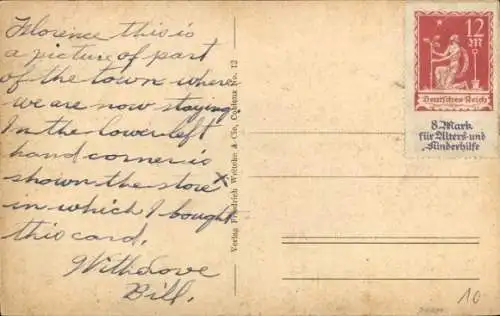 Florence this is
a picture of part
of the town where
we are now staying.
In the lower left
hand corner is
shown the store x
in which I bought
this card.
With Love
Bill.
Verlag Friedrich Weitzke & Cie, Coblenz No. 12
12
M
Deutsches Reich
8 Mark
für Alters- und
Kinderhilfe
10